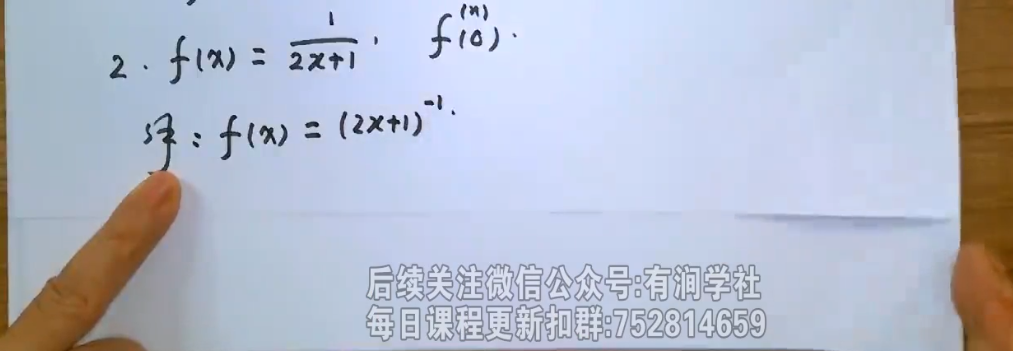 2. f(x) = 1/(2x+1), f⁽ⁿ⁾(0).
: f(x) = (2x+1)⁻¹.
后续关注微信公众号:有涧学社
每日课程更新扣群:752814659